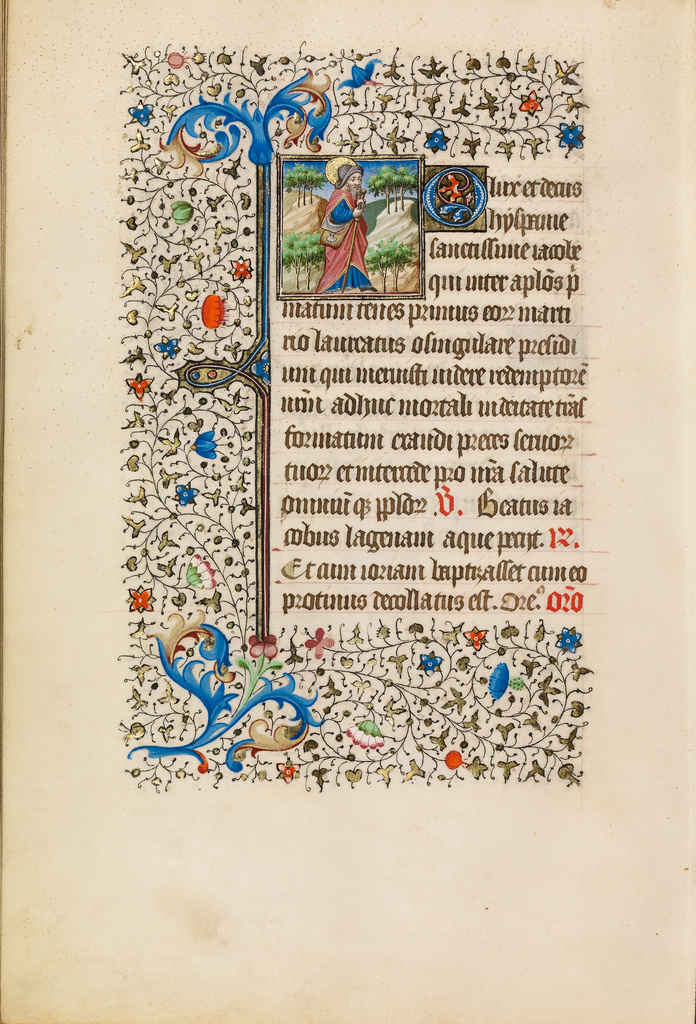 O lux et decus
hyspanie
sanctissime iacobe
qui inter aplõs p̃
matum tenes primus eoꝝ marti
rio laureatus o singulare presidi
um qui meruisti videre redemptorē
nr̄m adhuc mortalē in deitate trãs
formatum exaudi preces seruoꝝ
tuoꝝ et intercede pro nr̄a salute
omniũ q̃ pploꝝ V̄. Beatus ia
cobus lagenam aque petijt. R̄.
Et cum ioriam baptizasset cum eo
protinus decollatus est. Oreꝰ. or̃o